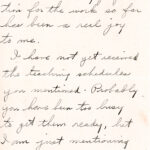 tion for the work so far
has been a real joy
to me.
I have not yet received
the teaching schedules
you mentioned. Probably
you have been too busy
to get them ready, but
I am just mentioning